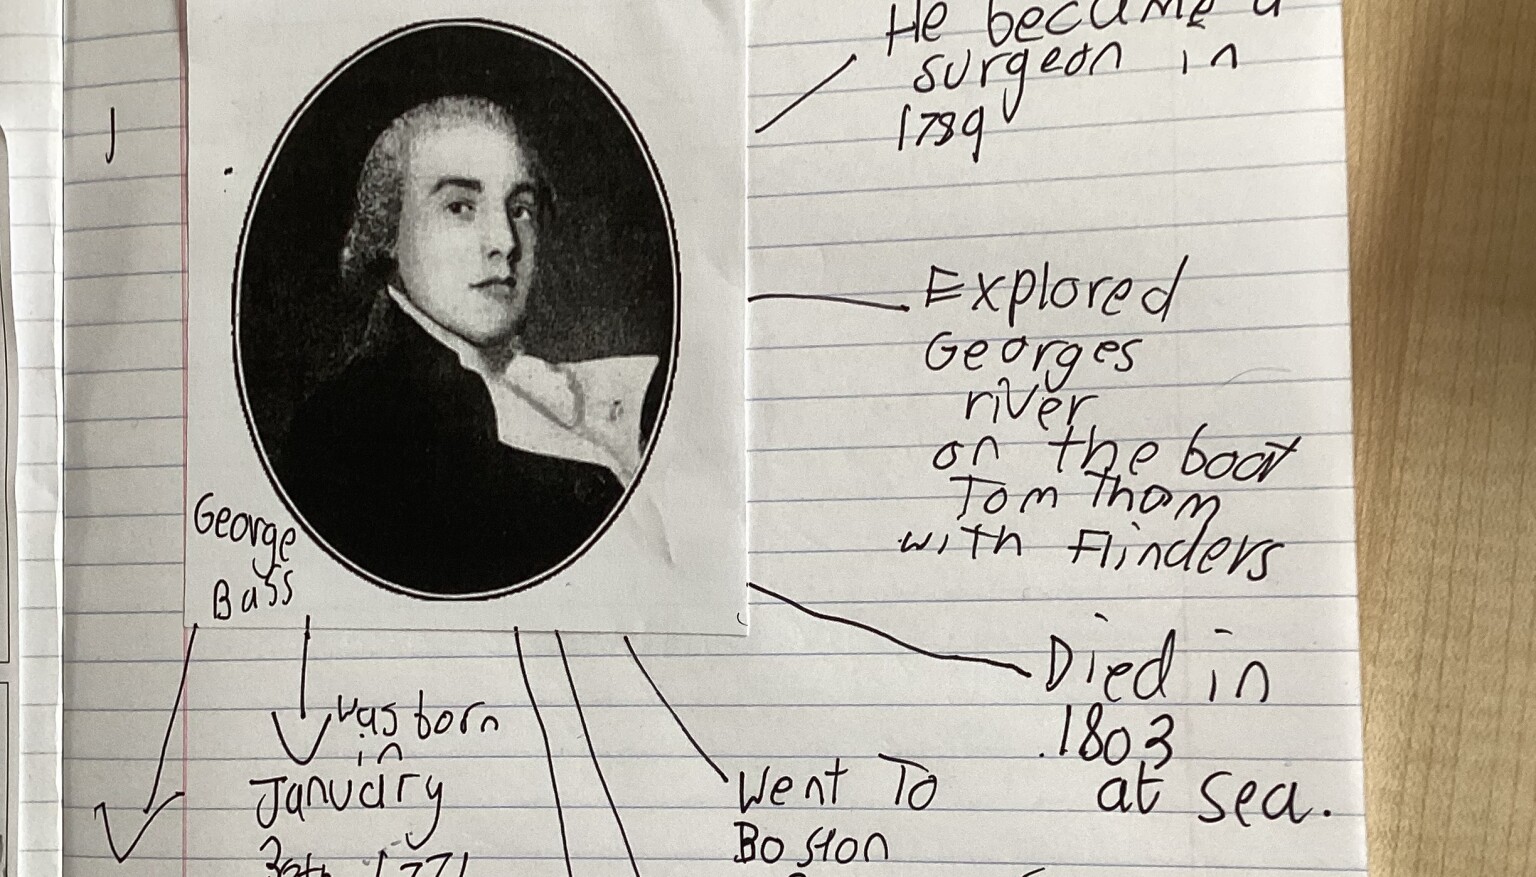 He became a
surgeon in
1789
Explored
Georges
river
on the boat
Tom Tham
with Flinders
George
Bass
Died in
1803
at sea.
was born
in
January
30th 1771
Went To
Boston